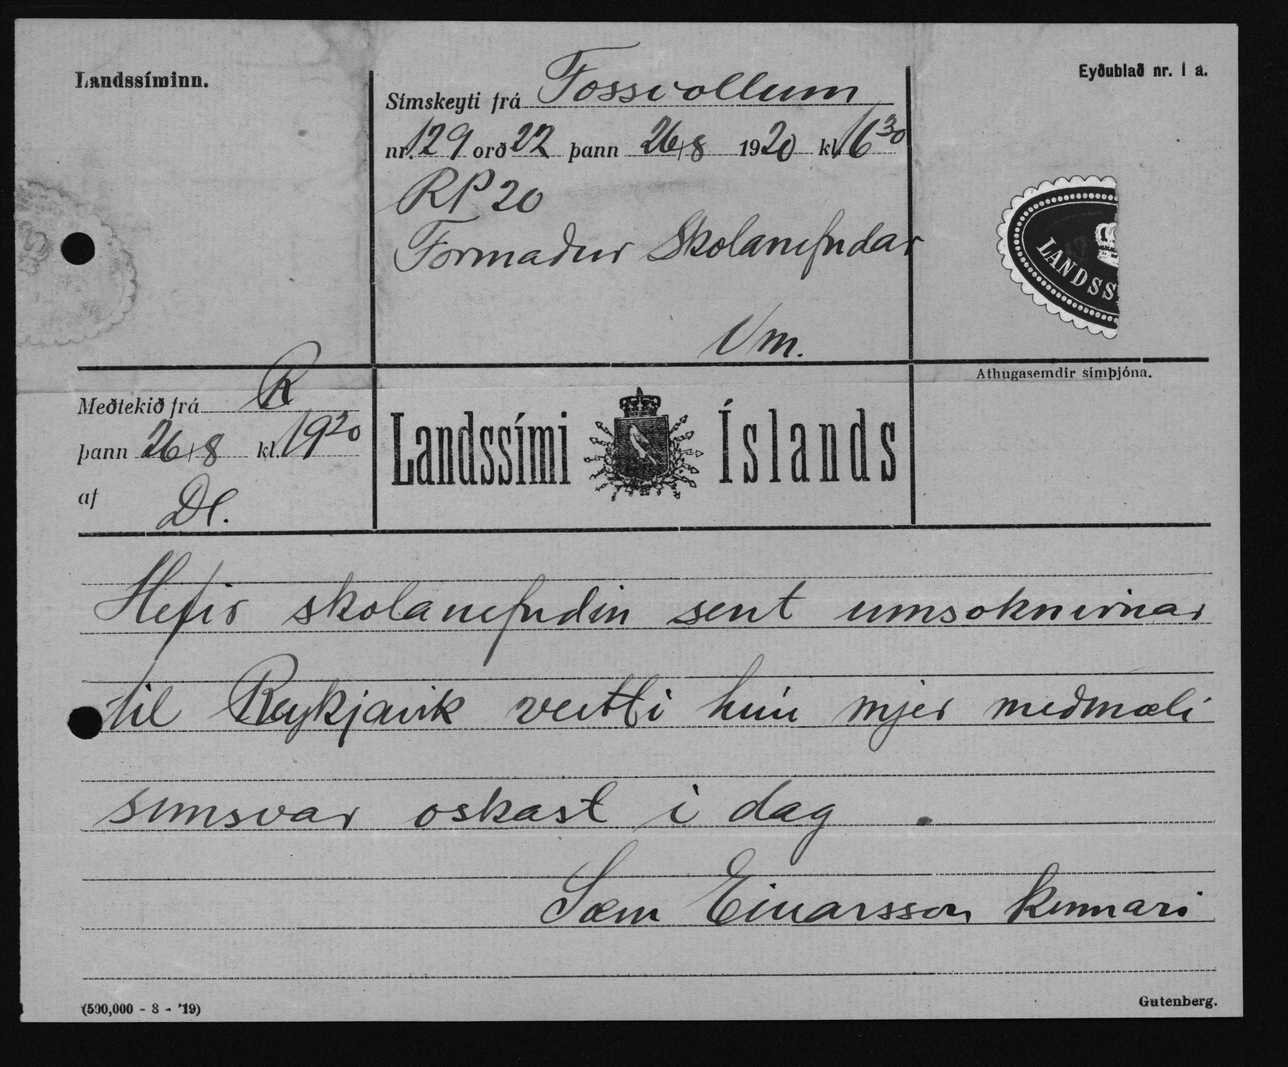 Landssíminn.
Eyðublað nr. 1 a.
Símskeyti frá Fossvollum
nr. 129 orð 22 þann 26/8 1920 kl. 16 30
RP 20
Formaður Skolanefndar
Vm.
LANDSS
Meðtekið frá R
þann 26/8 kl. 19 20
af Dl.
Landssími Íslands
Athugasemdir símþjóna.
Hefir skolanefndin sent umsoknirnar
til Reykjavik veitti hun mjer meðmæli
simsvar oskast i dag .
Sæm Einarsson kennari
(500,000 - 8 - '19)
Gutenberg.